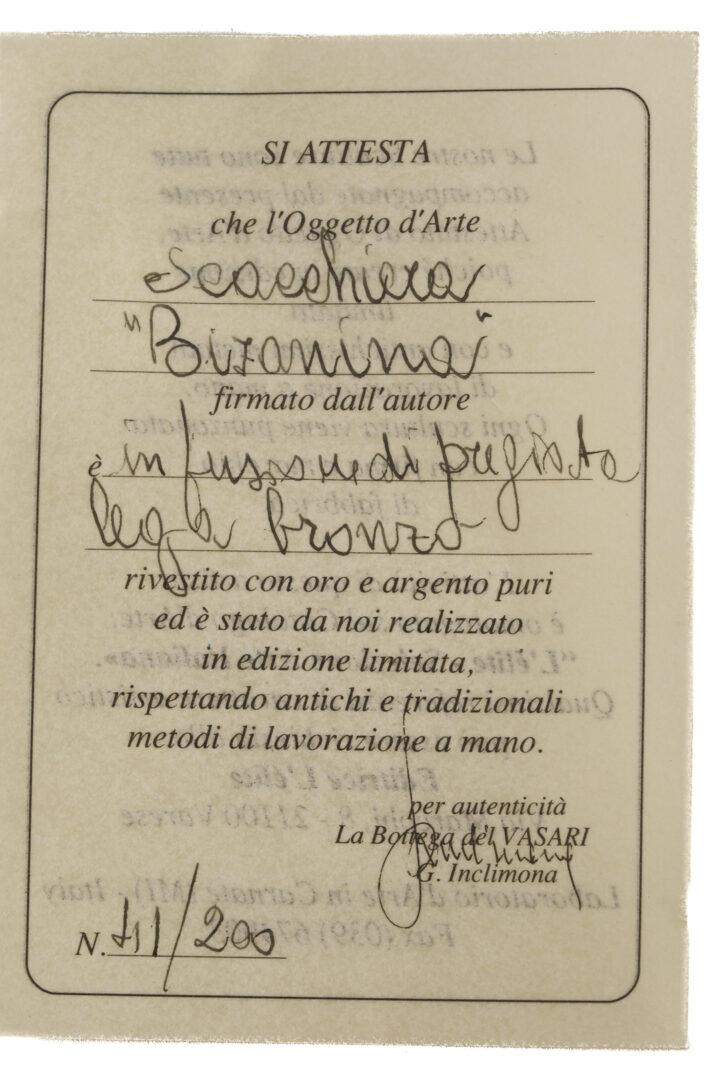 SI ATTESTA
che l'Oggetto d'Arte
Scacchiera
"Bizanina"
firmato dall'autore
è in fusione di pregiata
lega bronzo
rivestito con oro e argento puri
ed è stato da noi realizzato
in edizione limitata,
rispettando antichi e tradizionali
metodi di lavorazione a mano.
per autenticità
La Bottega del VASARI
G. Inclimona
N. 41/200